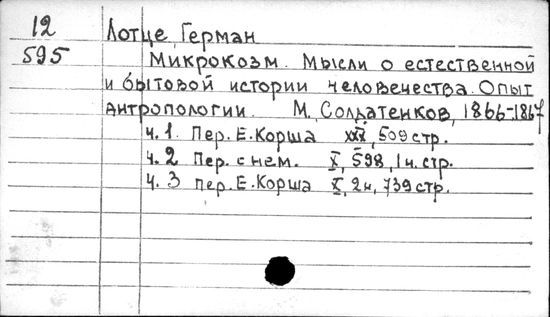 12 Лотце, Герман
595 Микрокозм. Мысли о естественной
и бытовой истории человечества. Опыт
антропологии. М., Солдатенков, 1866-1867
ч. 1. Пер. Е. Корша XXIX, 509 стр.
ч. 2 Пер. с нем. X, 598, 1н. стр.
ч. 3 Пер. Е. Корша X, 2н, 739 стр.